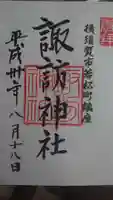 横須賀市若松町鎮座
諏訪神社
平成卅年八月十八日